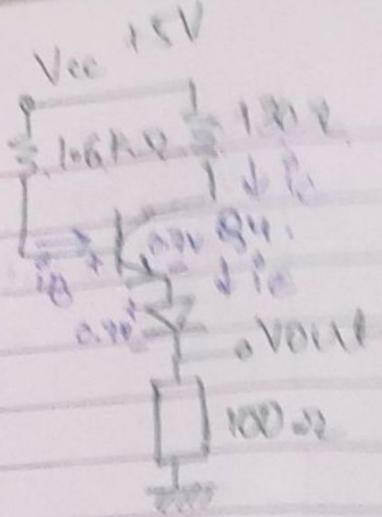 Vcc +5V
1.6kΩ 130Ω
ic
iB + 0.7V Q4
ie
0.7V +
Vout
100Ω